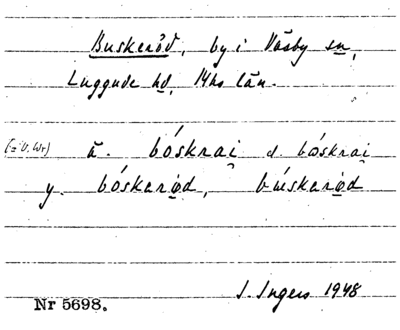 Buskeröd, by i Väsby sn,
Luggude hd, Mhs län.
(= U. Wr) ä. bóskrai d. bøskrai
y. bóskarød, búskarød
I. Ingers 1948
Nr 5698.